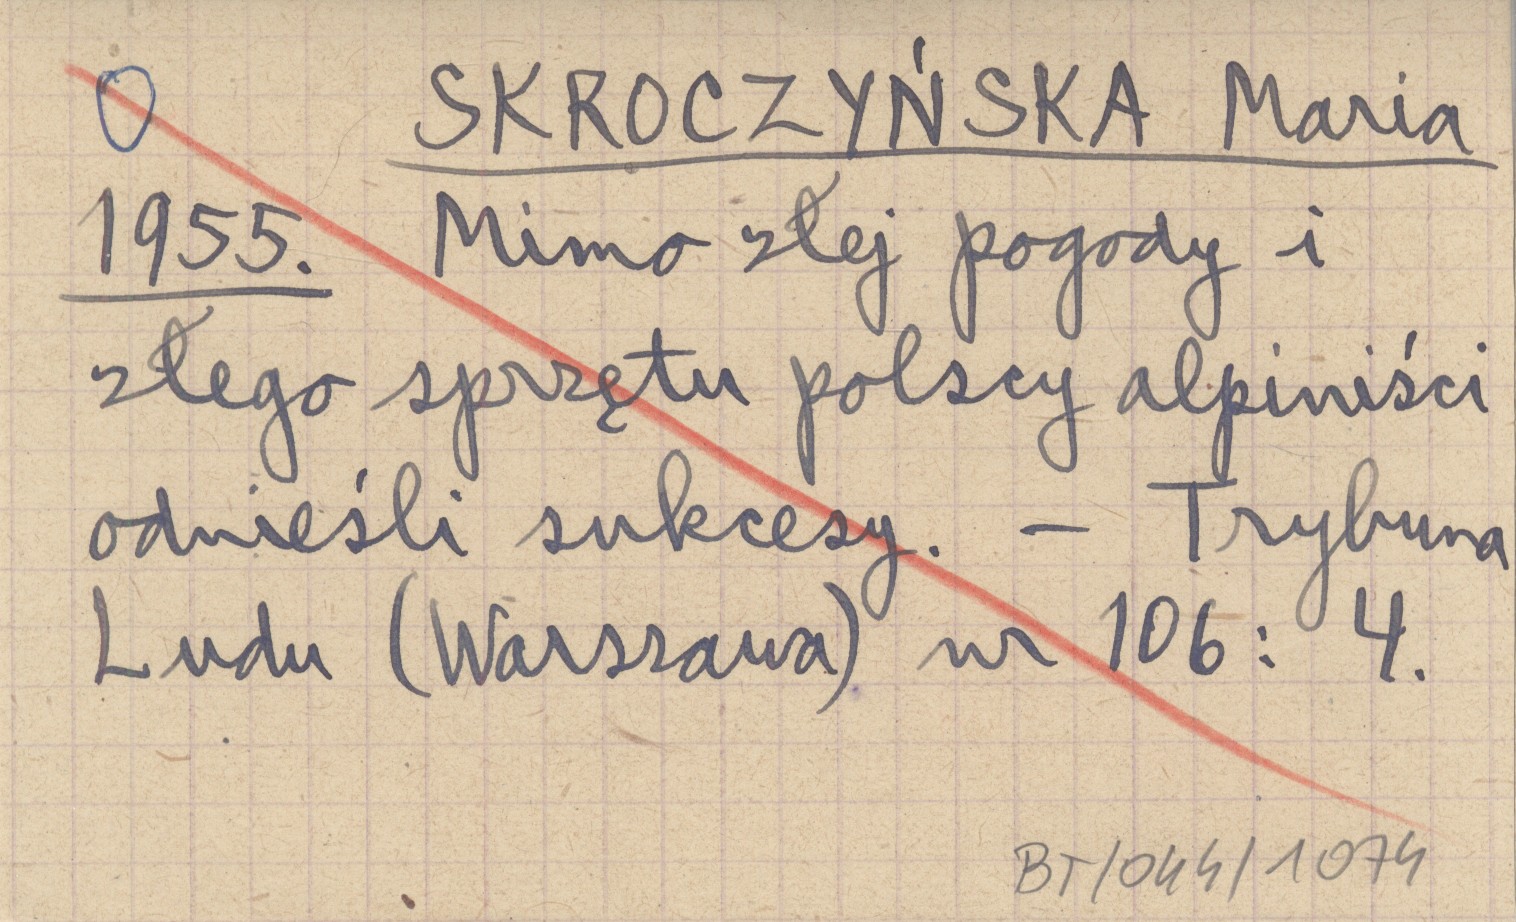 O SKROCZYŃSKA Maria
1955. Mimo złej pogody i
złego sprzętu polscy alpiniści
odnieśli sukcesy. - Trybuna
Ludu (Warszawa) nr 106: 4.
BT/044/1074